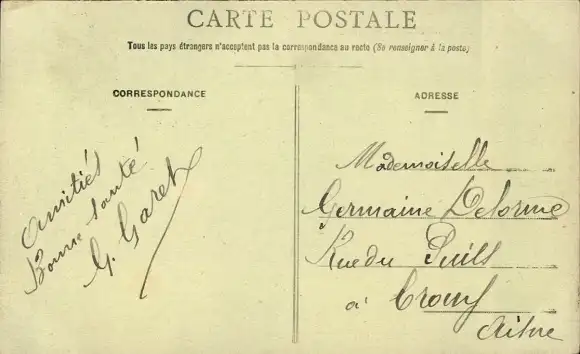 CARTE POSTALE
Tous les pays étrangers n'acceptent pas la correspondance au recto (Se renseigner à la poste)
CORRESPONDANCE
Amitiés
Bonne santé
G. Garet
ADRESSE
Mademoiselle
Germaine Delorme
Rue du Puits
à Crouy
Aisne